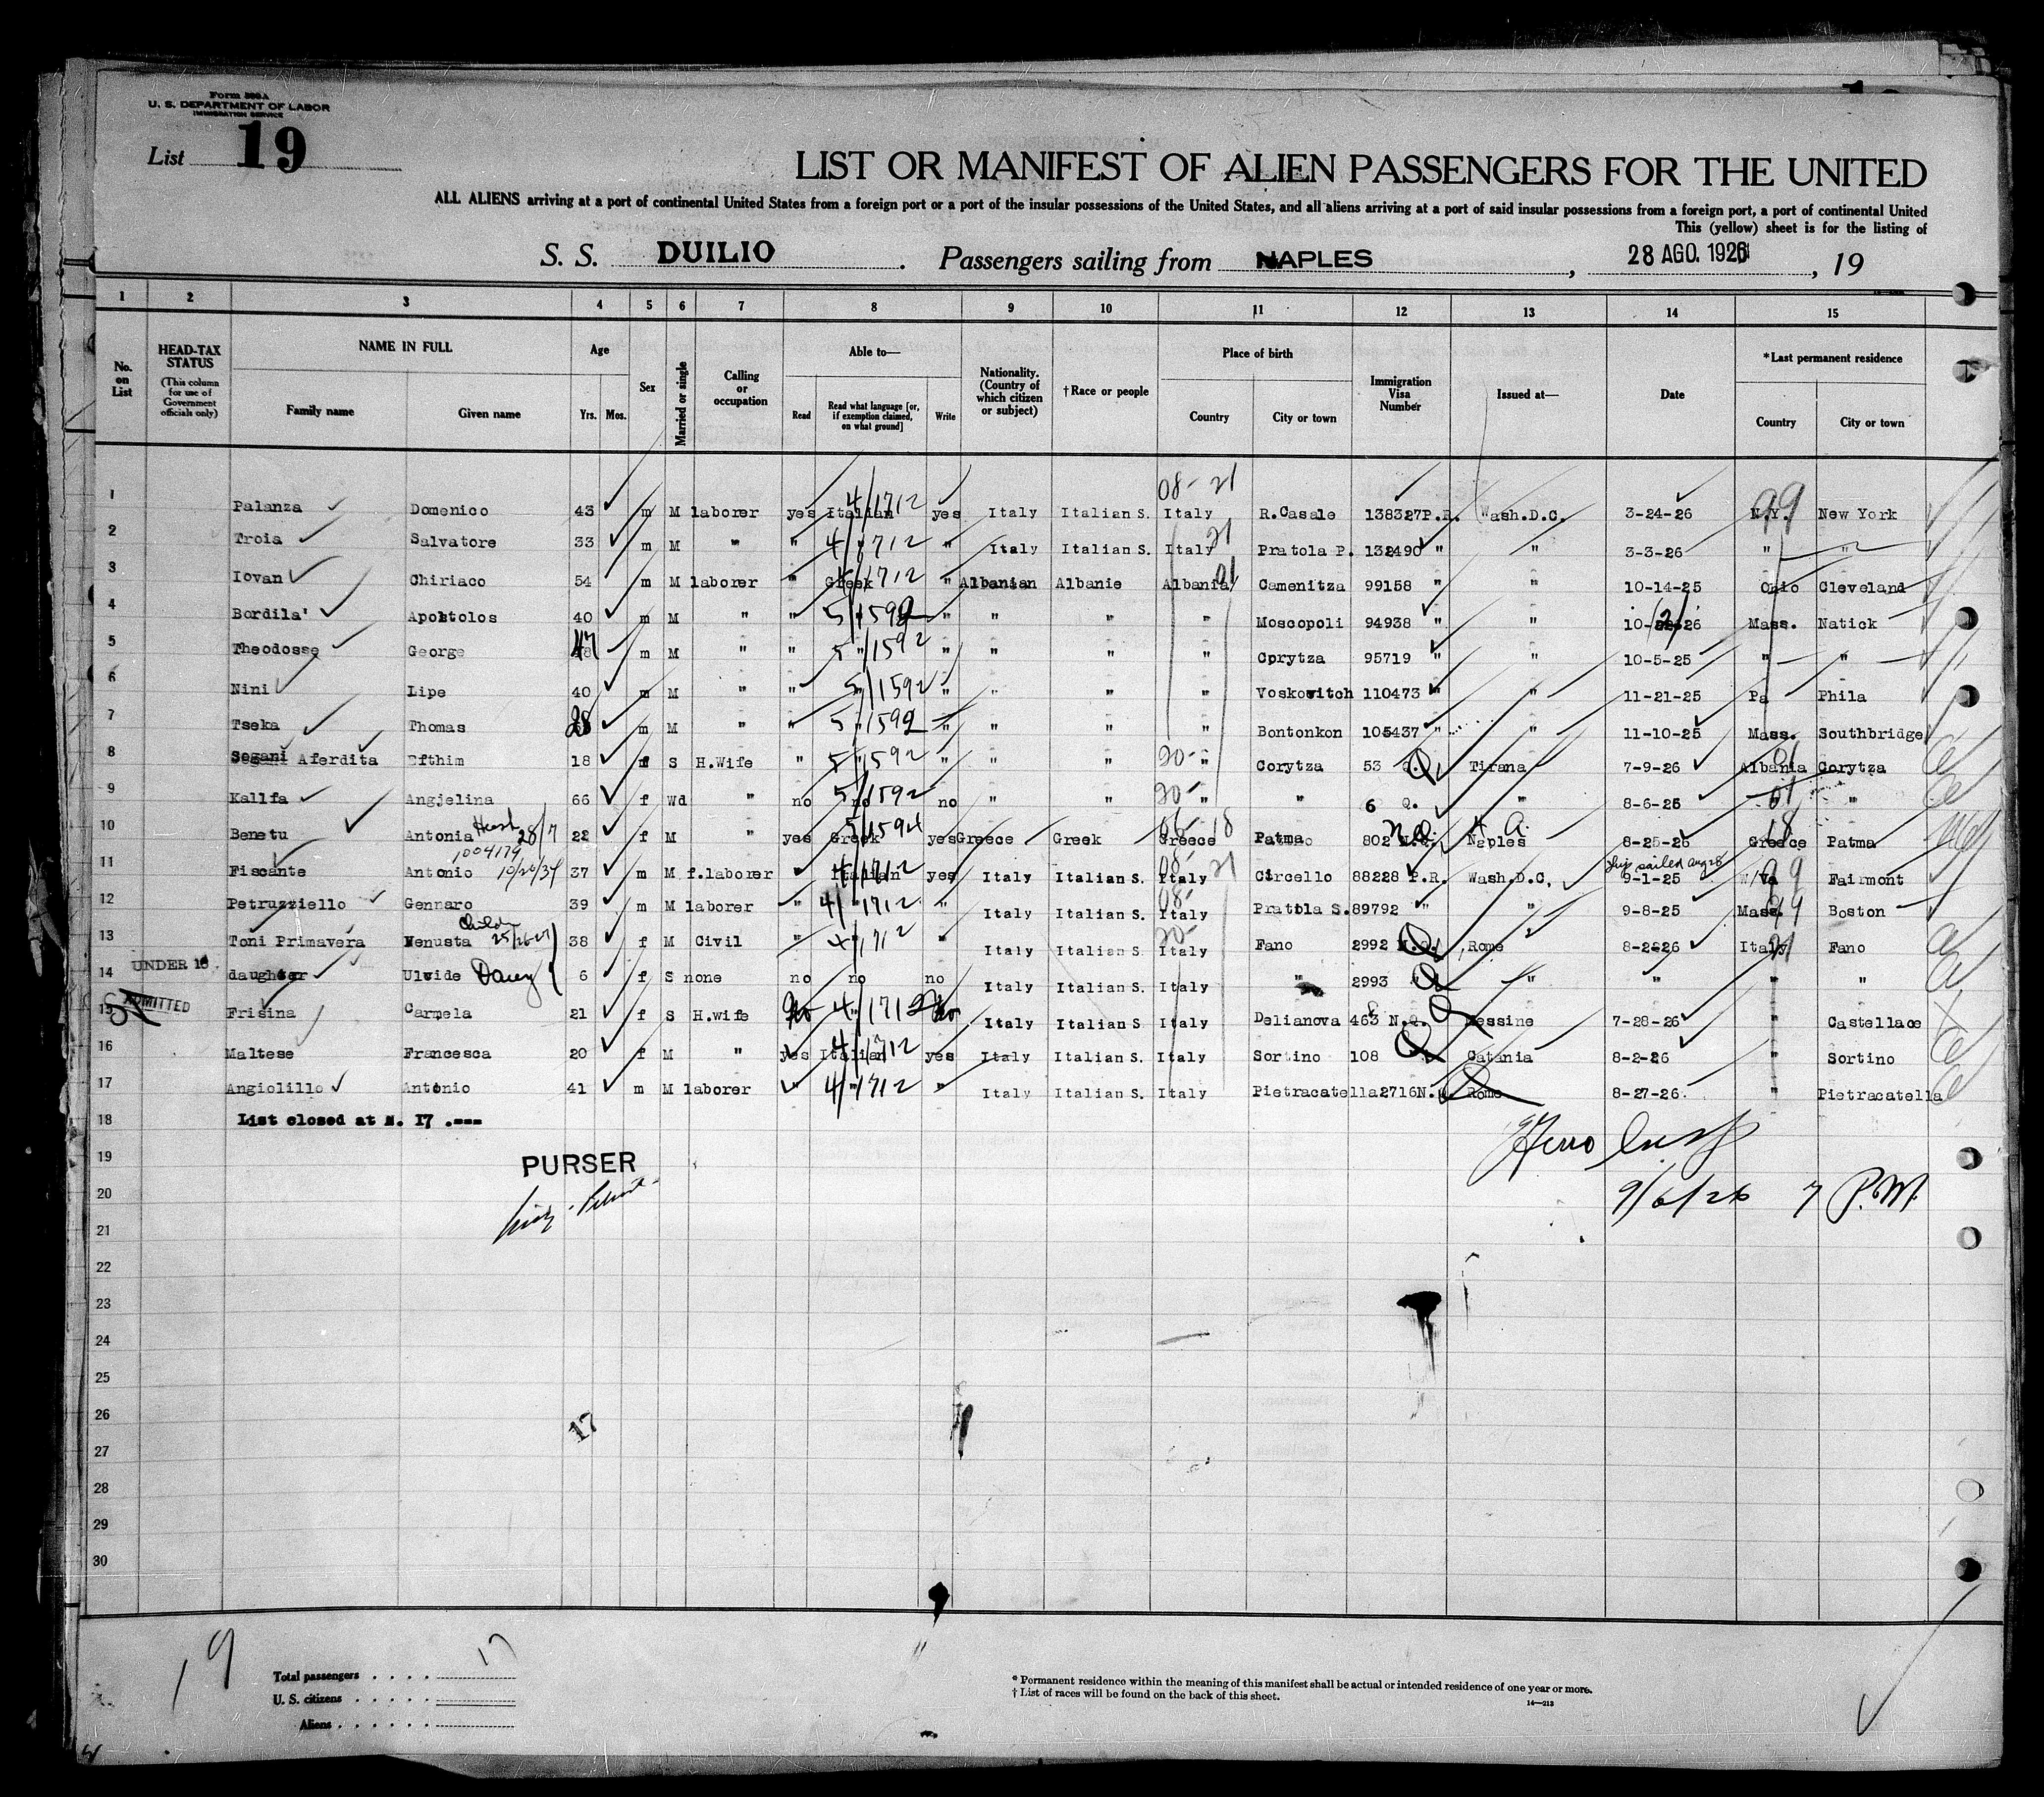 Form 500A
U. S. DEPARTMENT OF LABOR
IMMIGRATION SERVICE
List 19
LIST OR MANIFEST OF ALIEN PASSENGERS FOR THE UNITED
ALL ALIENS arriving at a port of continental United States from a foreign port or a port of the insular possessions of the United States, and all aliens arriving at a port of said insular possessions from a foreign port, a port of continental United
This (yellow) sheet is for the listing of
S. S. DUILIO. Passengers sailing from NAPLES, 28 AGO. 1926, 19
1 2 3 4 5 6 7 8 9 10 11 12 13 14 15
No. on List HEAD-TAX STATUS (This column for use of Government officials only) NAME IN FULL Family name Given name Age Yrs. Mos. Sex Married or single Calling or occupation Able to— Read Read what language [or, if exemption claimed, on what ground] Write Nationality. (Country of which citizen or subject) †Race or people Place of birth Country City or town Immigration Visa Number Issued at— Date *Last permanent residence Country City or town
08- 21
1 Palanza Domenico 43 m M laborer yes Italian 4/1712 yes Italy Italian S. Italy R.Casale 138327 P.R. Wash.D.C. 3-24-26 N.Y. 99 New York
2 Troia Salvatore 33 m M " " 4/1712 " Italy Italian S. Italy 21 Pratola P. 132490 " " 3-3-26 " "
3 Iovan Chiriaco 54 m M laborer " Greek 4/1712 " Albanian Albanie Albania 01 Camenitza 99158 " " 10-14-25 Ohio Cleveland
4 Bordila' Apostolos 40 m M " " 5/1592 " " " " Moscopoli 94938 " " 10- 26 Mass. Natick
5 Theodosse George 47 m M " " 5/1592 " " " " Corytza 95719 " " 10-5-25 " "
6 Nini Lipe 40 m M " " 5/1592 " " " " Voskowitch 110473 " " 11-21-25 Pa Phila
7 Tseka Thomas 28 m M " " 5/1592 " " " " Bontonkon 105437 " " 11-10-25 Mass. Southbridge
8 Segani Aferdita Efthim 18 f S H.Wife " 5/1592 " " " 20- " Corytza 53 Q. Tirana 7-9-26 Albania 01 Corytza
9 Kallfa Angjelina 66 f Wd " no no 5/1592 no " " 20- " " 6 Q. " 8-6-26 " 01 "
10 Benetu Antonia 28/7 22 f M " yes Greek 5/1594 yes Greece Greek 06- 18 Greece Patma 802 N.Q. Naples 8-25-26 Greece 18 Patma
1004179 10/20/34 Ship sailed Aug 28
11 Fiscante Antonio 37 m M f.laborer " Italian 4/1712 yes Italy Italian S. 08- 21 Italy Circello 88228 P.R. Wash.D.C. 9-1-25 W/Va 99 Fairmont
12 Petruzziello Gennaro 39 m M laborer " 4/1712 " Italy Italian S. 08- Italy Pratola S. 89792 " " 9-8-25 Mass. 99 Boston
Child 25/26-27
13 Toni Primavera Venusta 38 f M Civil " 4/1712 " Italy Italian S. 20- Italy Fano 2992 N.Q. Rome 8-2626 Italy 21 Fano
UNDER 16
14 daughter Ulvide 6 f S none no no no Italy Italian S. Italy " 2993 Q " " " "
ADMITTED
15 Frisina Carmela 21 f S H.wife no 4/1712 no Italy Italian S. Italy Delianova 463 N.Q. Messine 7-28-26 " Castellace
16 Maltese Francesca 20 f M " yes Italian 4/1712 yes Italy Italian S. Italy Sortino 108 Q Catania 8-2-26 " Sortino
17 Angiolillo Antonio 41 m M laborer " 4/1712 " Italy Italian S. Italy Pietracatella 2716 N.Q. Rome 8-27-26. " Pietracatella
18 List closed at N. 17 .---
19 PURSER
20 9/6/26 7 P.M.
21
22
23
24
25
26 17
27
28
29
30
19
Total passengers . . . . 17
U. S. citizens . . . . .
Aliens . . . . . .
* Permanent residence within the meaning of this manifest shall be actual or intended residence of one year or more.
† List of races will be found on the back of this sheet.
14—213